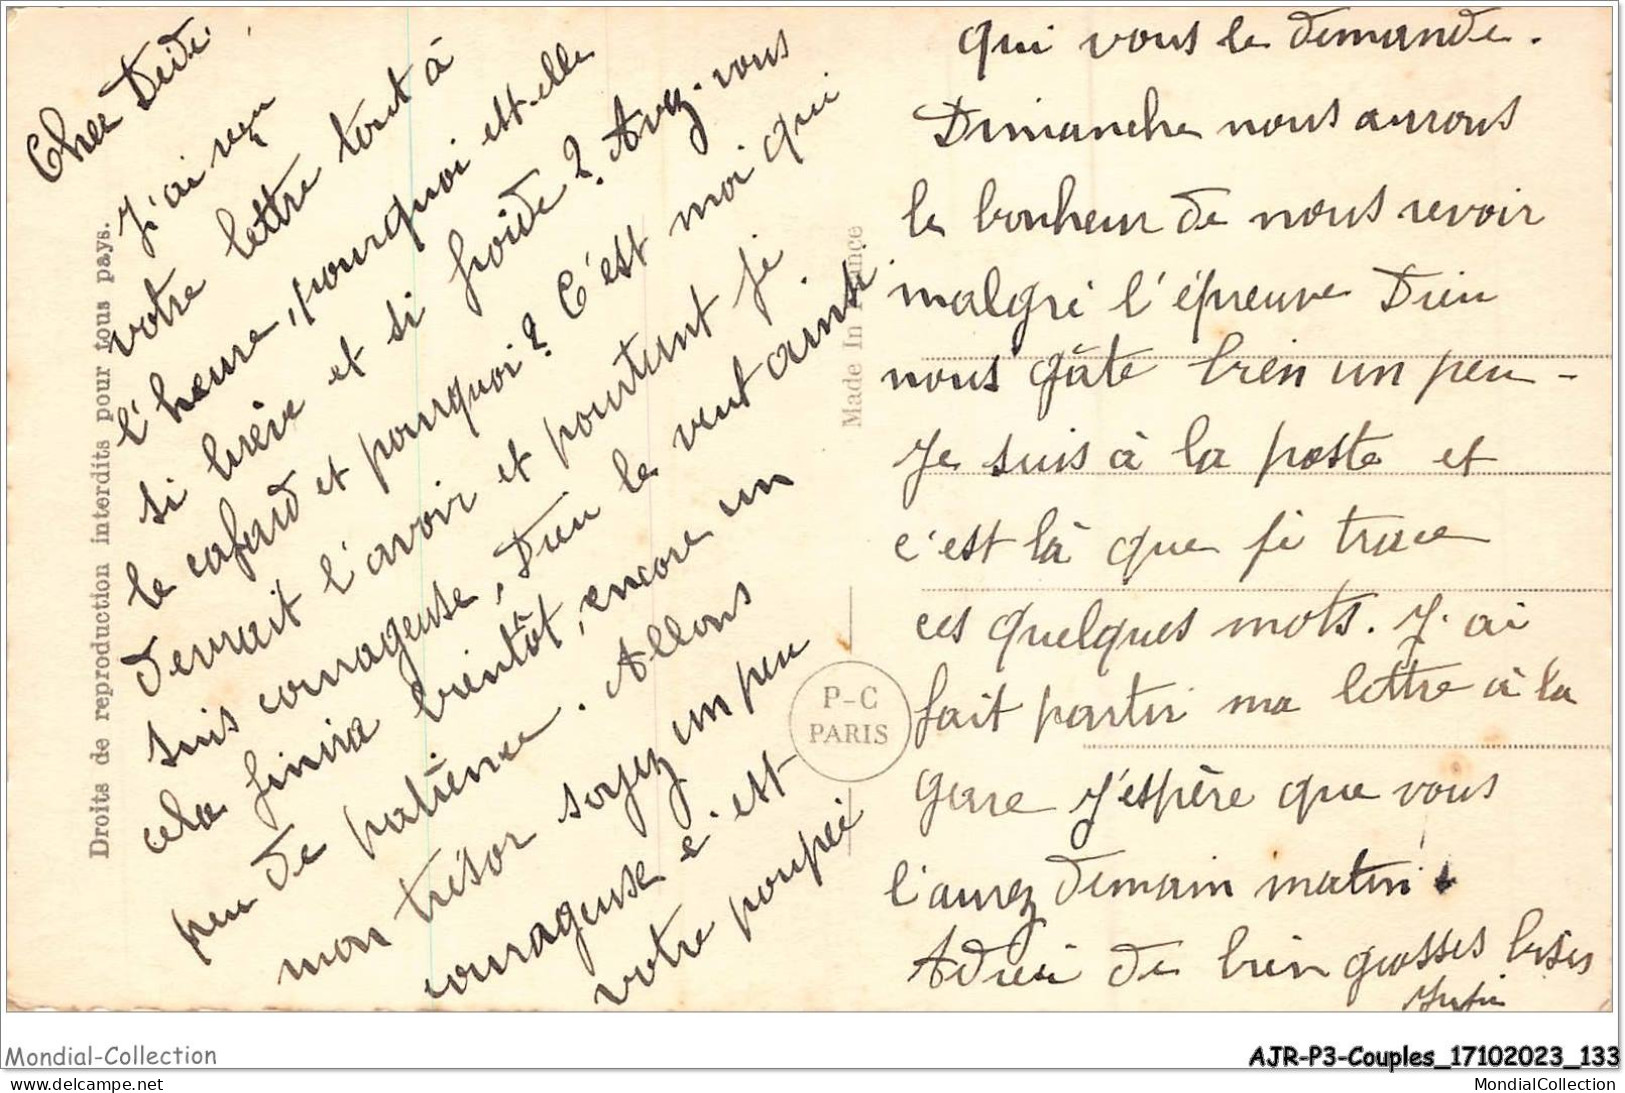 Cher Dédé,
J'ai reçu
votre lettre tout à
l'heure, pourquoi est-elle
si brève et si froide? Avez-vous
le cafard et pourquoi? C'est moi qui
devrait l'avoir et pourtant je
suis courageuse, Dieu le veut ainsi
cela finira bientôt, encore un
peu de patience. Allons
mon trésor soyez un peu
courageuse c'est
votre poupée
qui vous le demande.
Dimanche nous aurons
le bonheur de nous revoir
malgré l'épreuve Dieu
nous gâte bien un peu -
Je suis à la poste et
c'est là que je trace
ces quelques mots. J'ai
fait partir ma lettre à la
gare J'espère que vous
l'aurez demain matin.
Adieu de bien grosses bises
Droits de reproduction interdits pour tous pays.
Made In France
P-C
PARIS
Mondial-Collection
AJR-P3-Couples_17102023_133
delcampe.net
MondialCollection